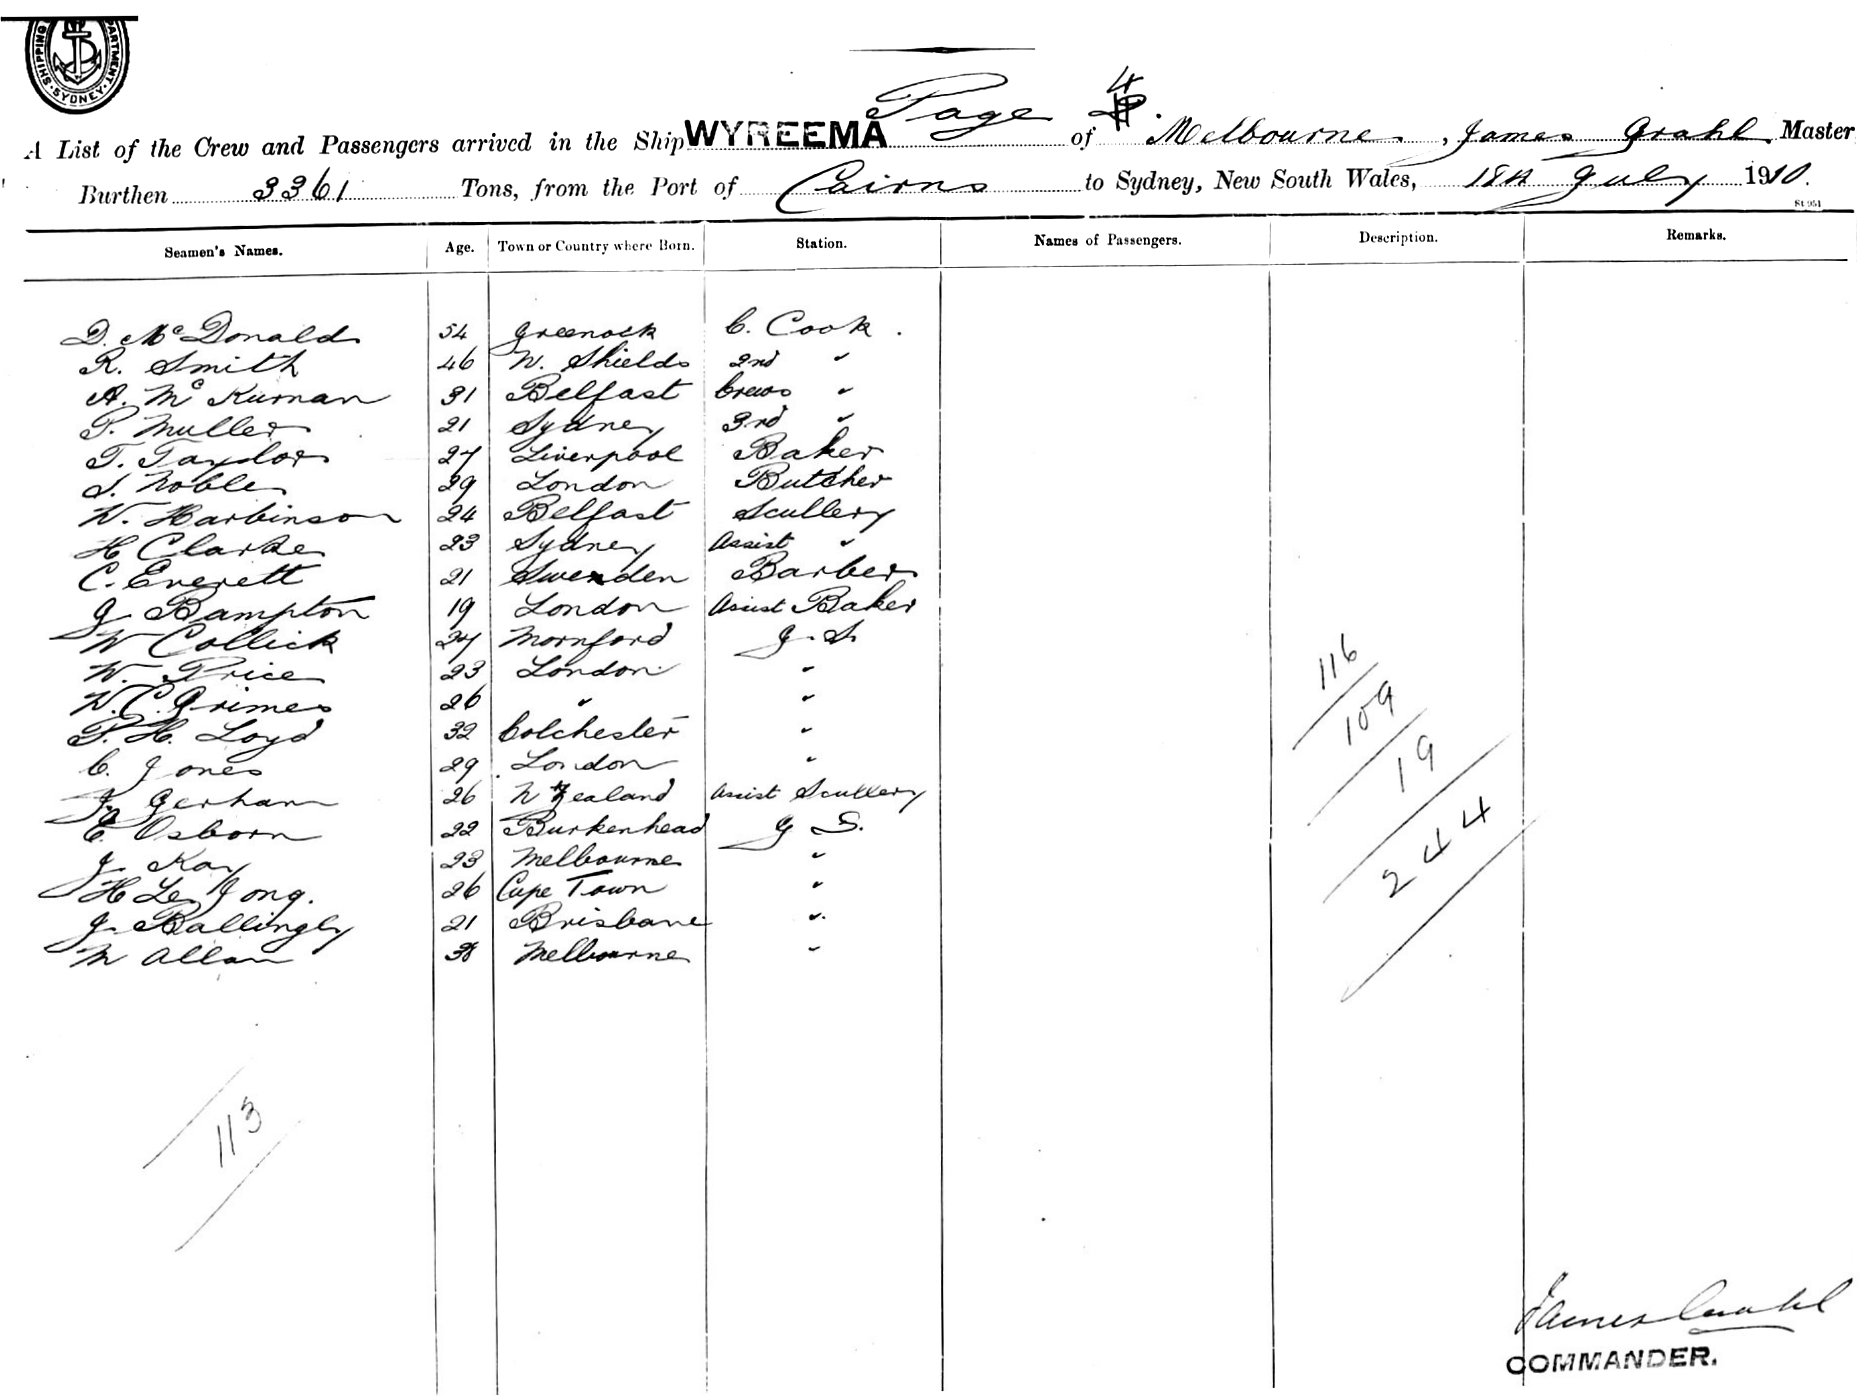 SHIPPING DEPARTMENT SYDNEY
Page 4
A List of the Crew and Passengers arrived in the Ship WYREEMA of Melbourne, James Grahl Master
Burthen 3361 Tons, from the Port of Cairns to Sydney, New South Wales, 18th July 1910.
St 951
Seamen's Names. Age. Town or Country where Born. Station. Names of Passengers. Description. Remarks.
D. McDonald 54 Greenock C. Cook.
R. Smith 46 N. Shields 2nd "
A. McKurnan 31 Belfast Crews "
P. Muller 21 Sydney 3rd "
T. Taylor 27 Liverpool Baker
S. Noble 29 London Butcher
W. Harbinson 24 Belfast Scullery
H Clarke 23 Sydney Assist "
C. Everett 21 Sweden Barber
J Bampton 19 London Assist Baker
W Collick 27 Mornford G. S.
W. Price 23 London "
W. C. Grimes 26 " "
P. H. Loyd 32 Colchester "
C. Jones 29 London "
J. Gerham 26 N Zealand Assist Scullery
C. Osborn 22 Burkenhead G S.
J. Kay 23 Melbourne "
H Le Jong. 26 Cape Town "
J. Ballingly 21 Brisbane "
M Allan 38 Melbourne "
116
109
19
244
113
James Grahl
COMMANDER.